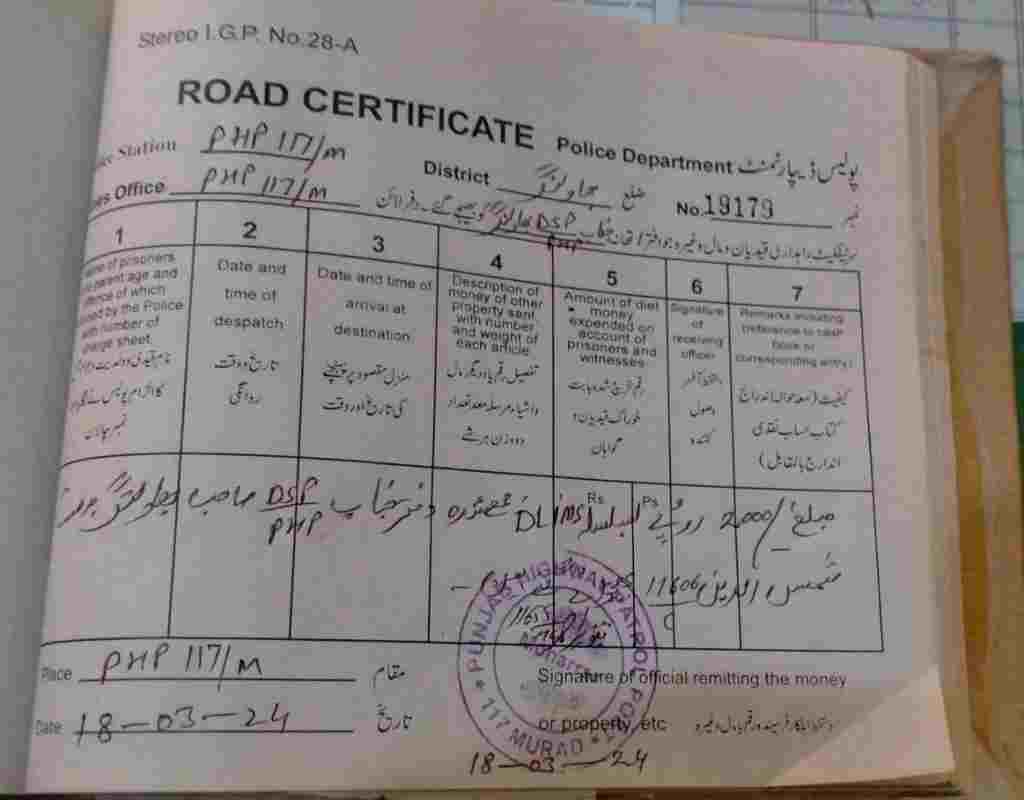 Stereo I.G.P. No.28-A
ROAD CERTIFICATE Police Department پولیس ڈیپارٹمنٹ
ce Station PHP 117/M District ضلع No.19179 نمبر
es Office PHP 117/M
DSP PHP
1 2 3 4 5 6 7
me of prisoners parent age and offence of which by the Police with number of charge sheet.
Date and time of despatch
Date and time of arrival at destination
Description of money of other property sent with number and weight of each article
Amount of diet money expended on account of prisoners and witnesses
Signature of receiving officer
Remarks including reference to cash book or corresponding entry
تاریخ و وقت روانگی
منزل مقصود پر پہنچنے کی تاریخ اور وقت
تفصیل رقم یا دیگر مال و اشیاء مرسلہ معہ تعداد و وزن ہر شے
رقم خرچ شدہ بابت خوراک قیدیان و گواہان
دستخط آفسر وصول کنندہ
کیفیت (معہ حوالہ اندراج کتاب حساب نقدی اندارج بالمقابل)
Rs Ps
مبلغ /2000 روپے DLIMS دفتر جناب DSP PHP صاحب
شمس الدین 11606
PUNJAB HIGHWAY PATROL POST
* 117 MURAD *
Moharrar
Place PHP 117/M مقام
Signature of official remitting the money
Date 18-03-24 تاریخ
or property, etc
18-03-24